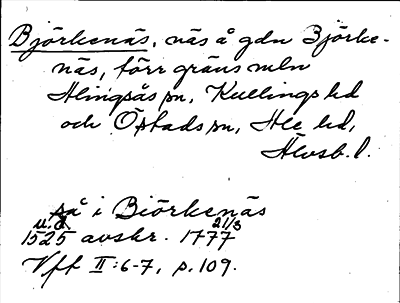 Björkenäs, näs å gdn Björke-
näs, förr gräns mln
Alingsås sn, Kullings hd
och Östads sn, Ale hd,
Älvsb. l.
på i Biörkenäs
u.å. 21/3
1525 avskr. 1777
Vff II:6-7, p. 109.